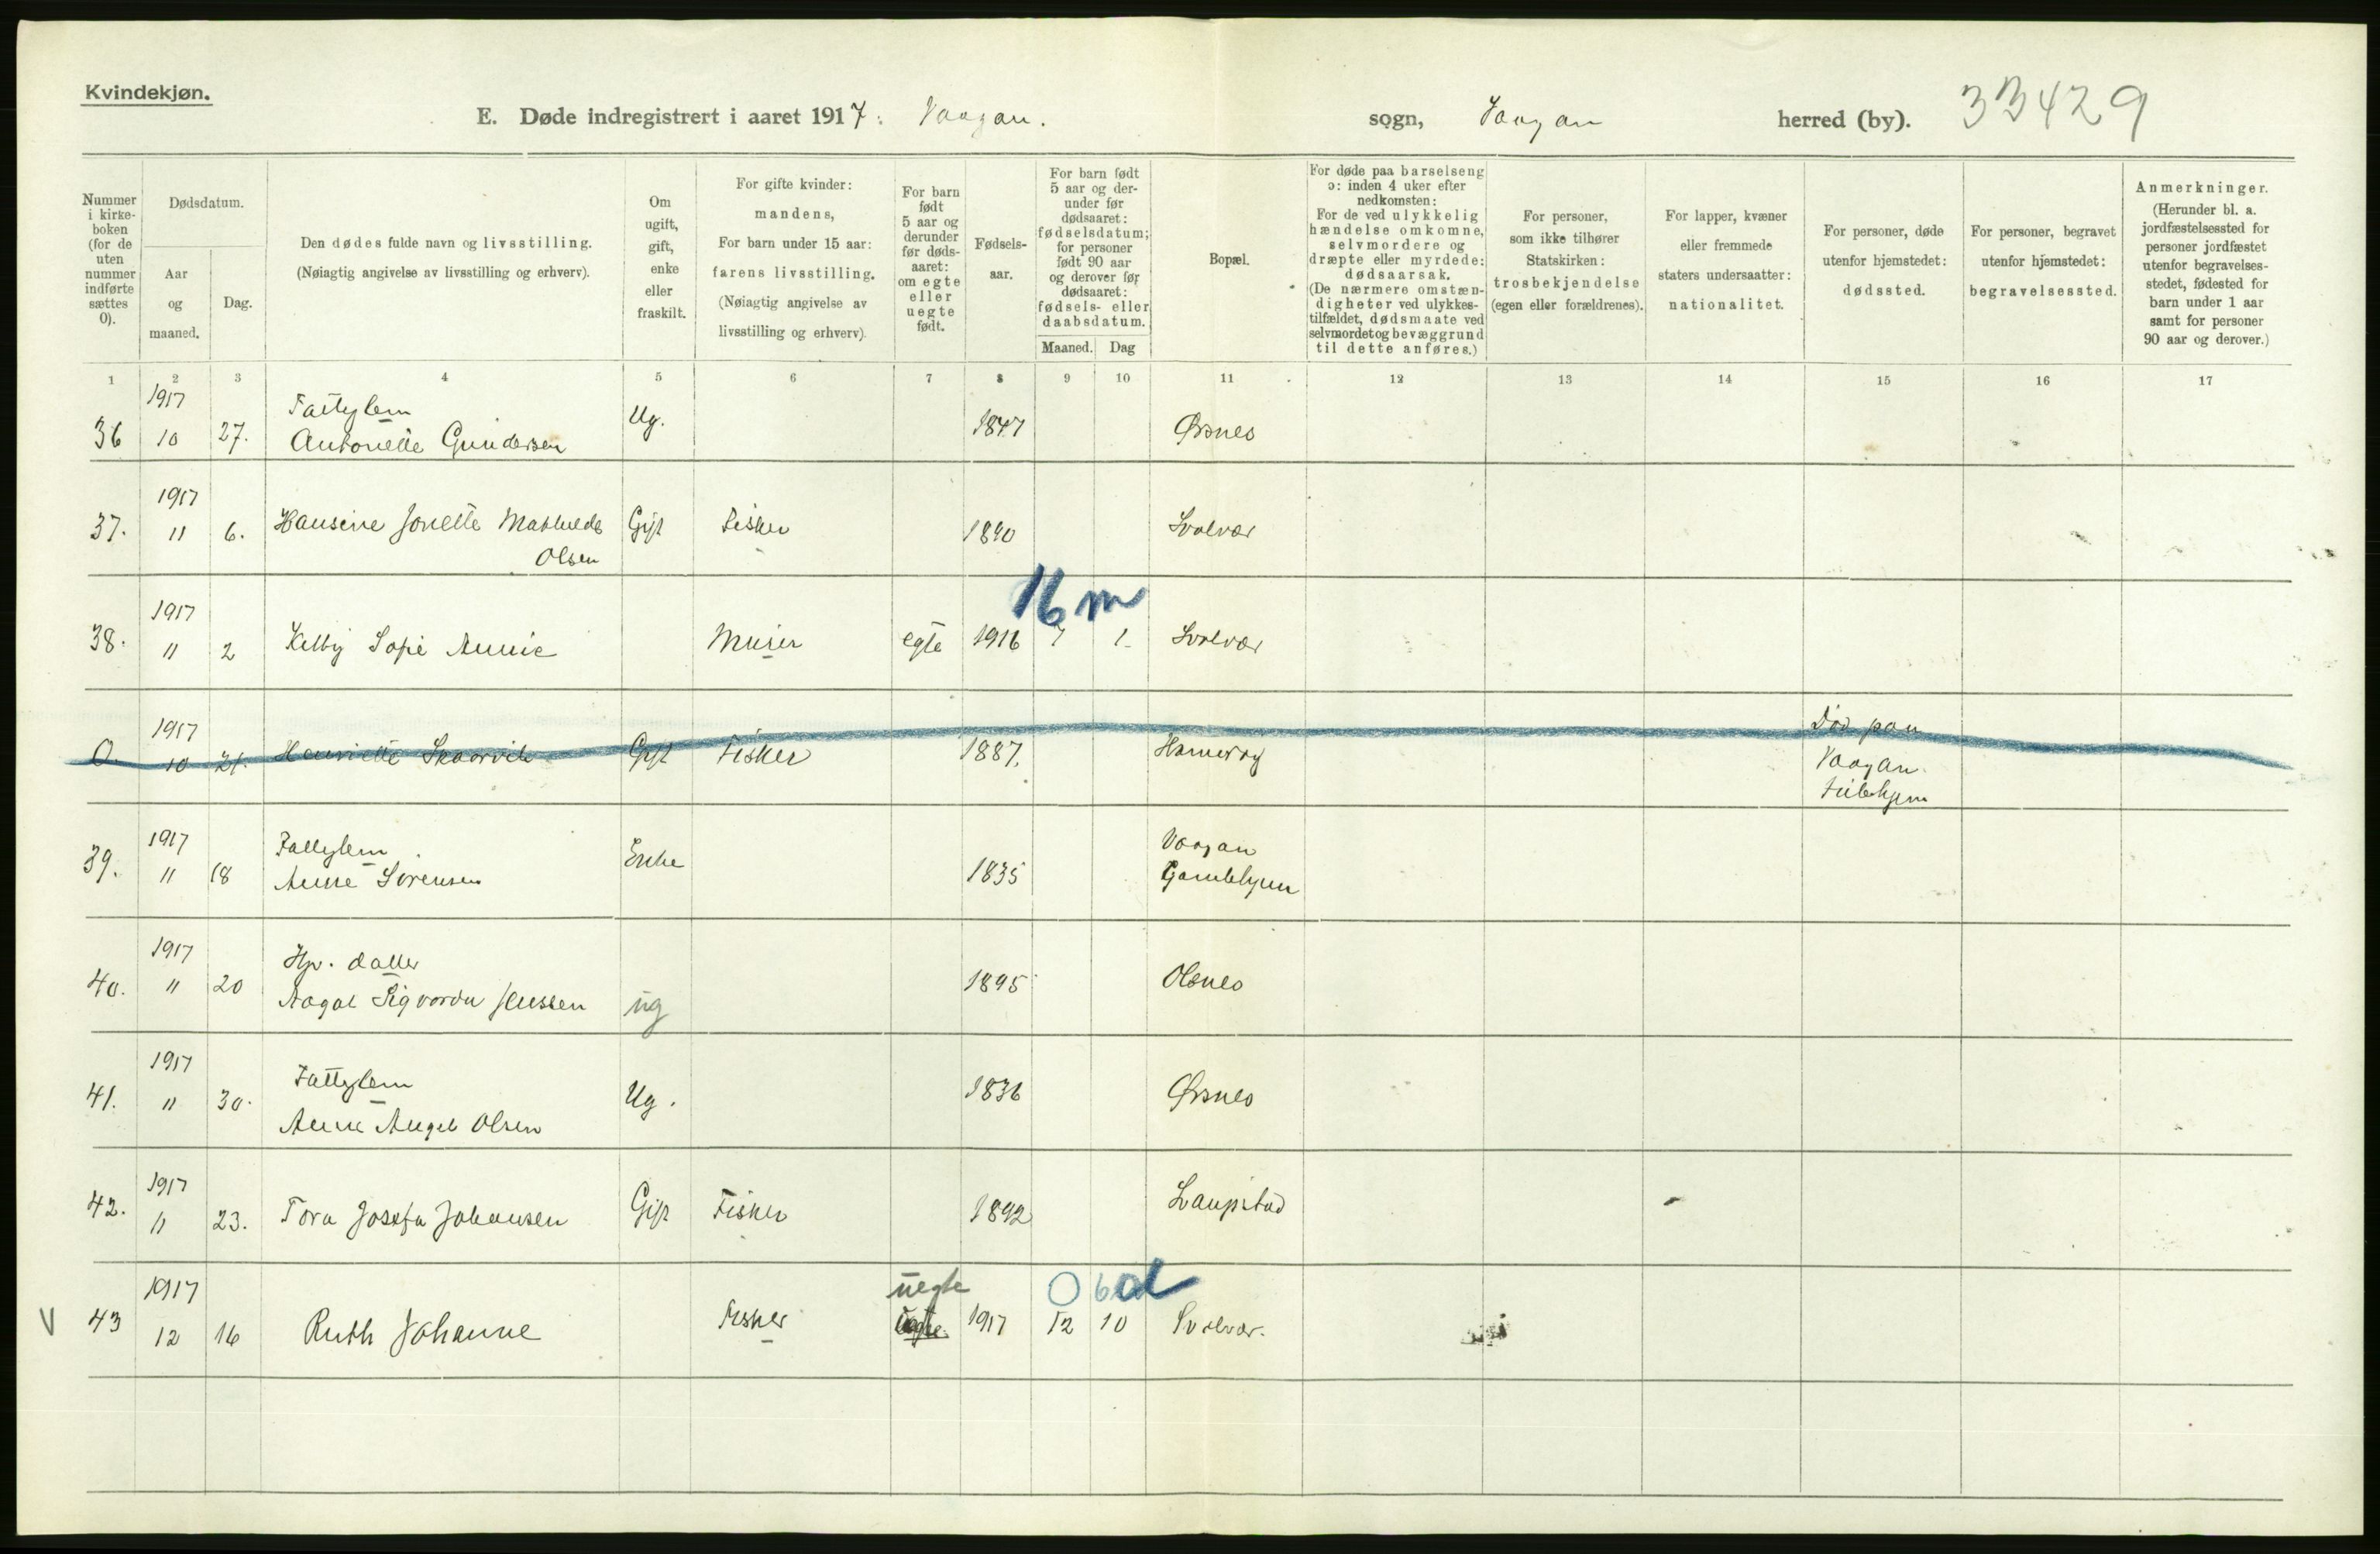 Kvindekjøn.
E. Døde indregistrert i aaret 1917. Vaagan. sogn, Vaagan herred (by). 33429
Nummer i kirke-boken (for de uten nummer indførte sættes 0).
Dødsdatum.
Aar og maaned.
Dag.
Den dødes fulde navn og livsstilling.
(Nøiagtig angivelse av livsstilling og erhverv).
Om ugift, gift, enke eller fraskilt.
For gifte kvinder: mandens, For barn under 15 aar: farens livsstilling. (Nøiagtig angivelse av livsstilling og erhverv).
For barn født 5 aar og derunder før døds-aaret: om egte eller uegte født.
Fødsels-aar.
For barn født 5 aar og der-under før dødsaaret: fødselsdatum; for personer født 90 aar og derover før dødsaaret: fødsels- eller daabsdatum.
Maaned. Dag
Bopæl.
For døde paa barselseng ɔ: inden 4 uker efter nedkomsten: For de ved ulykkelig hændelse omkomne, selvmordere og dræpte eller myrdede: dødsaarsak. (De nærmere omstæn-digheter ved ulykkes-tilfældet, dødsmaate ved selvmordet og bevæggrund til dette anføres.)
For personer, som ikke tilhører Statskirken: trosbekjendelse (egen eller forældrenes).
For lapper, kvæner eller fremmede staters undersaatter: nationalitet.
For personer, døde utenfor hjemstedet: dødssted.
For personer, begravet utenfor hjemstedet: begravelsessted.
Anmerkninger. (Herunder bl. a. jordfæstelsessted for personer jordfæstet utenfor begravelses-stedet, fødested for barn under 1 aar samt for personer 90 aar og derover.)
1 2 3 4 5 6 7 8 9 10 11 12 13 14 15 16 17
1917 Fattiglem
36 10 27. Antonette Gundersen Ug. 1847 Ørsnes
1917
37. 11 6. Hansine Jonette Mathilde Gift Fisker 1890 Svolvær
Olsen
16 m
1917
38. 11 2 Sofie Annie Murer egte 1916 7 1. Svolvær
1917 Død paa
0. 10 21. Henriette Gift Fisker 1887. Hamerøy Vaagan
1917 Fattiglem Vaagan
39. 11 18 Anne Sørensen Enke 1835 Gamlehjem
1917 Hjv. datter
40. 11 20 Aagot Sigvarda Jenssen ug 1895 Olsnes
1917 Fattiglem
41. 11 30. Anne Angel Olsen Ug. 1836 Ørsnes
1917
42. 11 23. Tora Josefa Johansen Gift Fisker 1892 Laupstad
1917 uegte 0 6 d
V 43 12 16 Ruth Johanne Fisker 1917 12 10 Svolvær.